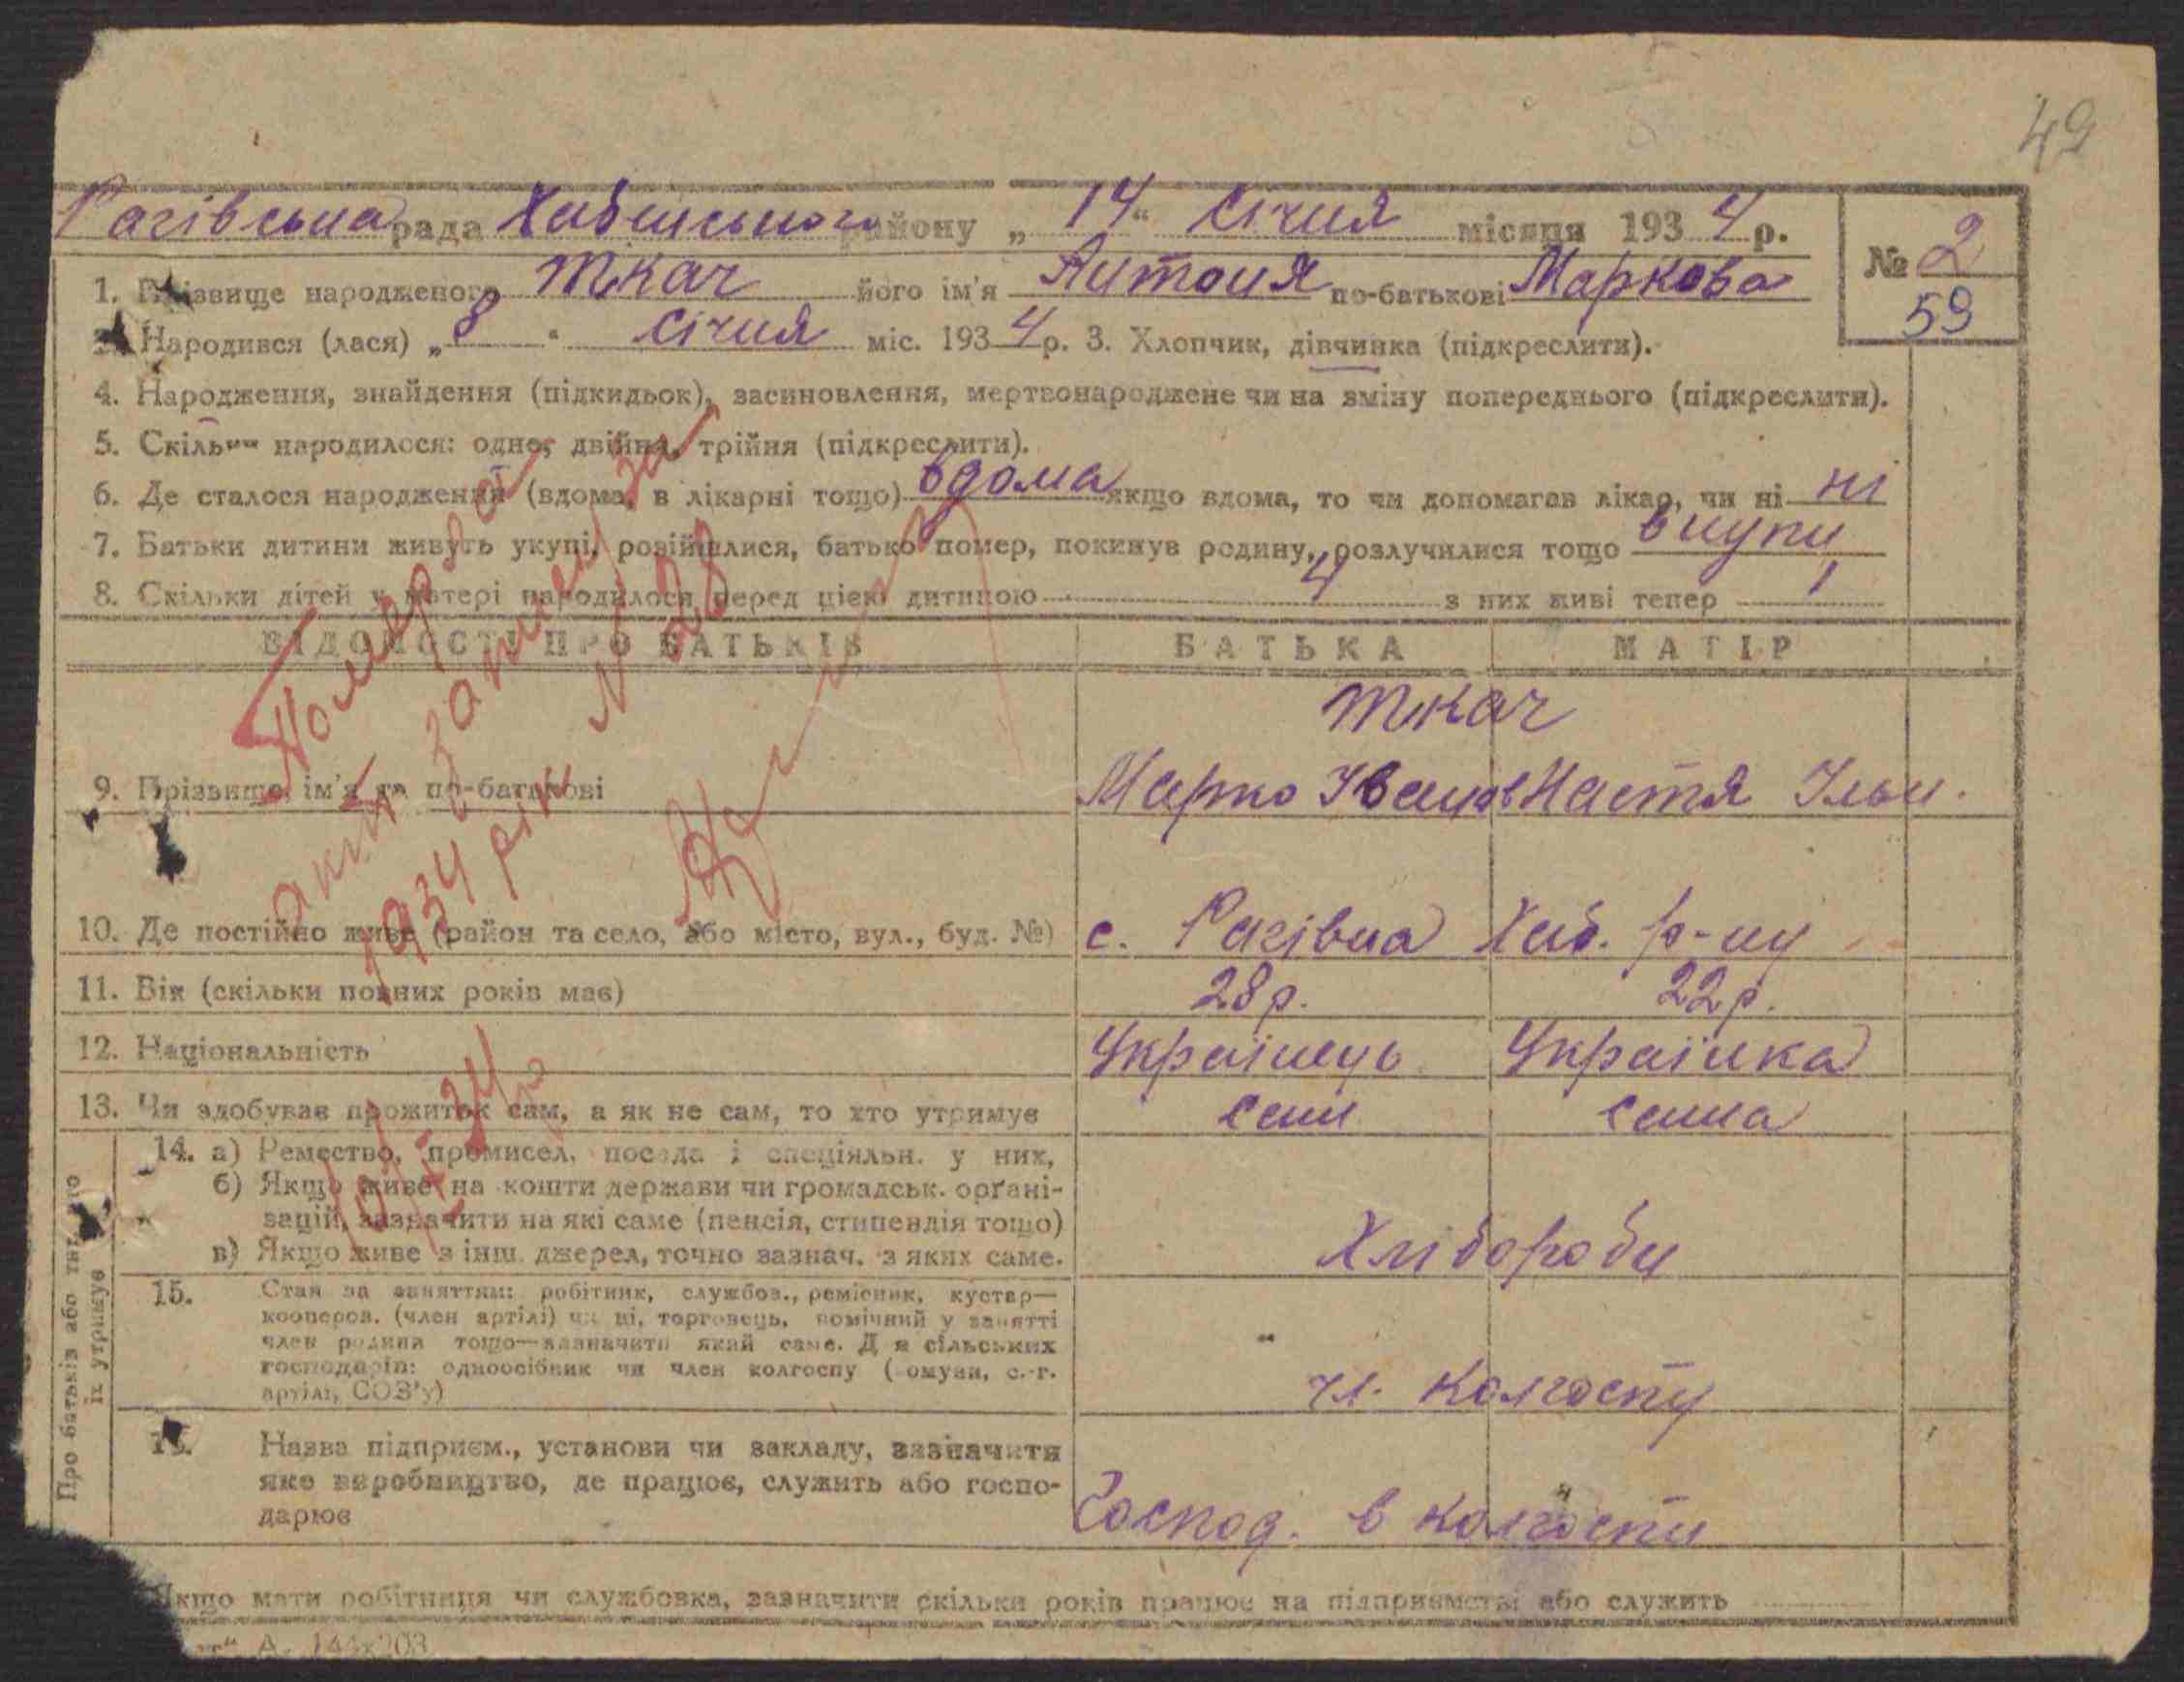 49
Рагівська рада Хабенського району „14“ січня місяця 1934 р.
№ 2
59
1. Прізвище народженого Ткач його ім'я Антоня по-батькові Маркова
2. Народився (лася) „8“ січня міс. 1934 р. 3. Хлопчик, дівчинка (підкреслити).
4. Народження, знайдення (підкидьок), засиновлення, мертвонароджене чи на зміну попереднього (підкреслити).
5. Скільки народилося: одне, двійня, трійня (підкреслити).
6. Де сталося народження (вдома, в лікарні тощо) вдома якщо вдома, то чи допомагав лікар, чи ні ні
7. Батьки дитини живуть укупі, розійшлися, батько помер, покинув родину, розлучилися тощо вкупи
8. Скільки дітей у матері народилося перед цією дитиною 4 з них живі тепер 1
ВІДОМОСТІ ПРО БАТЬКІВ БАТЬКА МАТІР
Ткач
9. Прізвище, ім'я та по-батькові Марко Іванов Настя Ільн.
10. Де постійно живе (район та село, або місто, вул., буд. №) с. Рагівка Хаб. р-ну
11. Вік (скільки повних років має) 28 р. 22 р.
12. Національність Українець Українка
13. Чи здобуває прожиток сам, а як не сам, то хто утримує сам сама
14. а) Ремество, промисел, посада і спеціяльн. у них,
б) Якщо живе на кошти держави чи громадськ. орґані-
зацій, зазначити на які саме (пенсія, стипендія тощо)
в) Якщо живе з інш. джерел, точно зазнач. з яких саме.
Хлібороби
15. Стан за заняттям: робітник, службов., ремісник, кустар—
кооперов. (член артілі) чи ні, торговець, помічний у занятті
член родини тощо—зазначити який саме. Для сільських
господарів: одноосібник чи член колгоспу (комуни, с.-г.
артілі, СОЗ'у)
чл. колгоспу
16. Назва підприєм., установи чи закладу, зазначити
яке виробництво, де працює, служить або госпо-
дарює
Господ. в колгоспи
Про батьків або тих, хто
їх утримує
Якщо мати робітниця чи службовка, зазначити скільки років працює на підприємстві або служить
А. 144х203
Помер
акт
за
1934 рік №